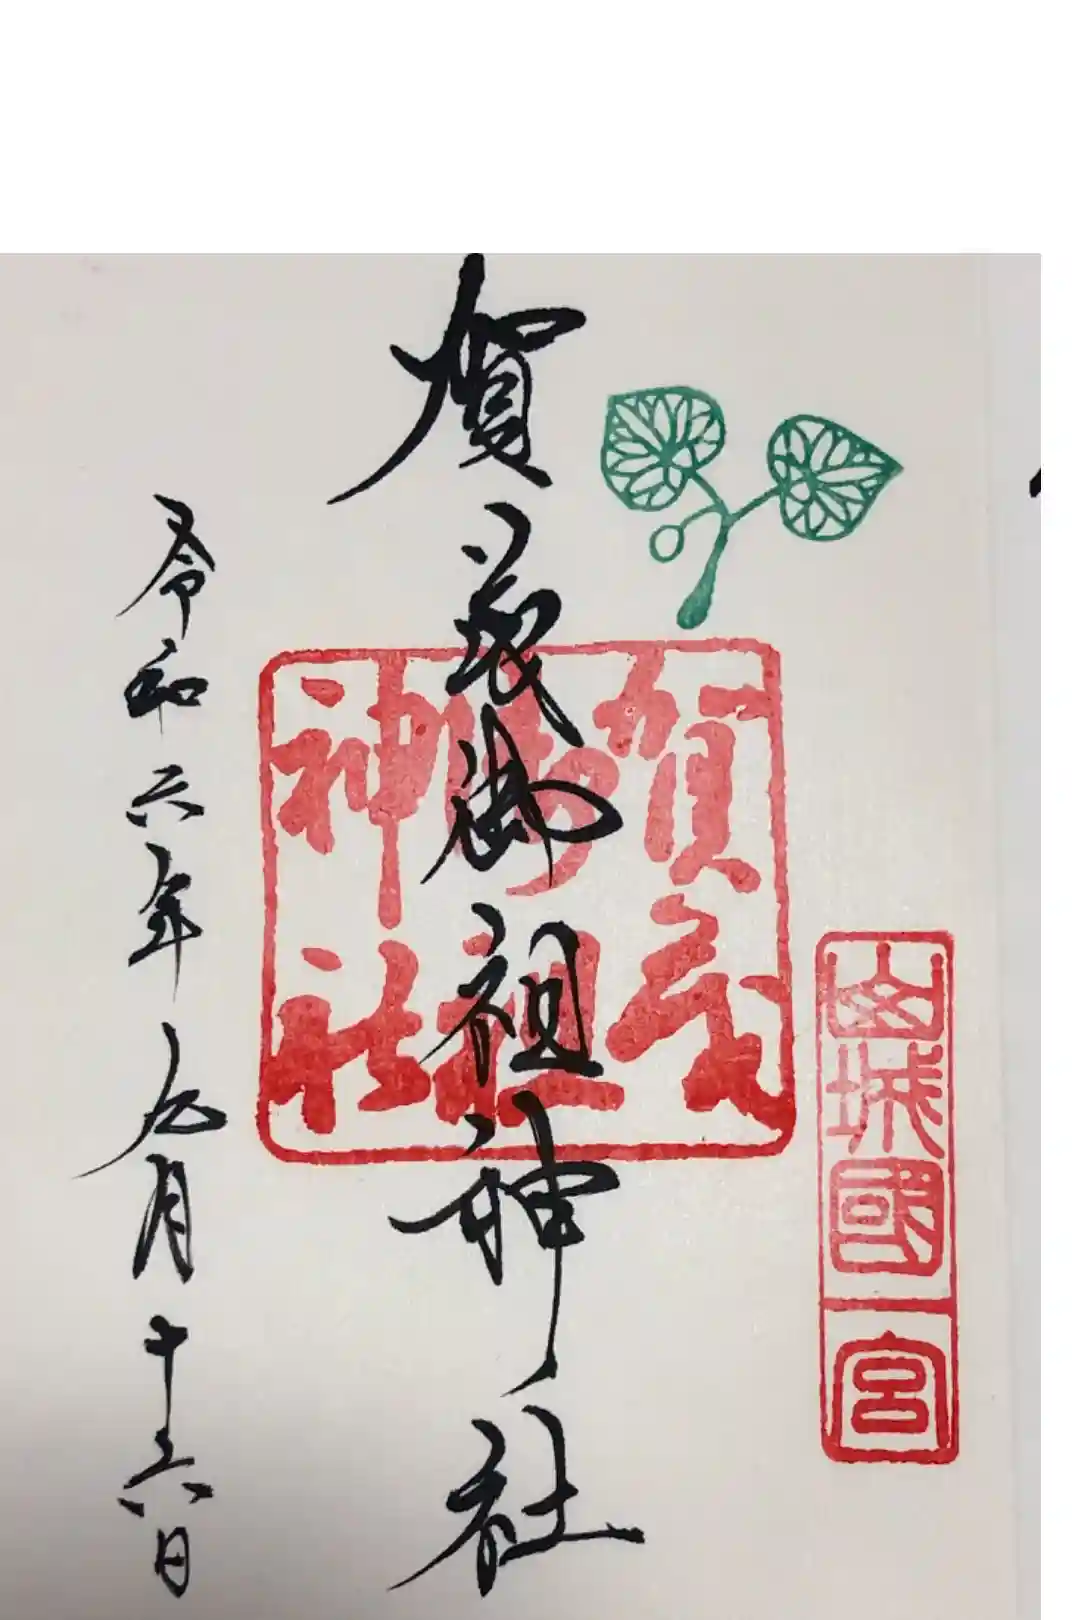 山城國一宮
賀茂御祖神社
賀茂
御祖
神社
令和六年九月十六日